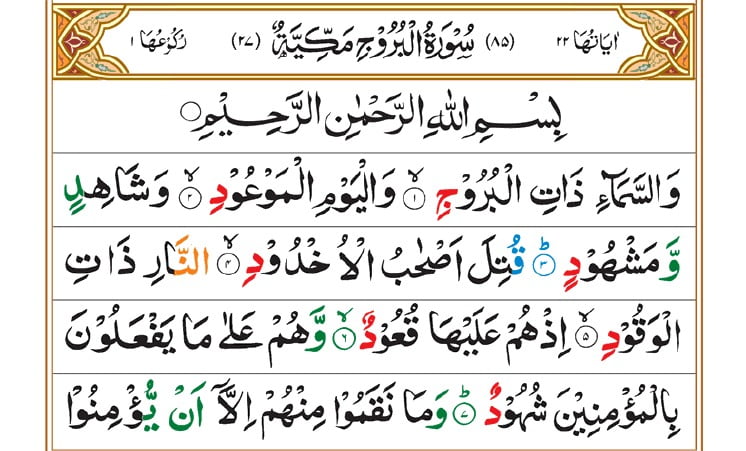 اٰيَاتُهَا ٢٢ (٨٥) سُوْرَةُ الْبُرُوْجِ مَكِّيَّةٌ (٢٧) رُكُوْعُهَا ١
بِسْمِ اللهِ الرَّحْمٰنِ الرَّحِيْمِ
وَالسَّمَآءِ ذَاتِ الْبُرُوْجِ ۙ﴿١﴾ وَالْيَوْمِ الْمَوْعُوْدِ ۙ﴿٢﴾ وَشَاهِدٍ
وَّمَشْهُوْدٍ ؕ﴿٣﴾ قُتِلَ اَصْحٰبُ الْاُخْدُوْدِ ۙ﴿٤﴾ النَّارِ ذَاتِ
الْوَقُوْدِ ۙ﴿٥﴾ اِذْ هُمْ عَلَيْهَا قُعُوْدٌ ۙ﴿٦﴾ وَّهُمْ عَلٰى مَا يَفْعَلُوْنَ
بِالْمُؤْمِنِيْنَ شُهُوْدٌ ؕ﴿٧﴾ وَمَا نَقَمُوْا مِنْهُمْ اِلَّآ اَنْ يُّؤْمِنُوْا